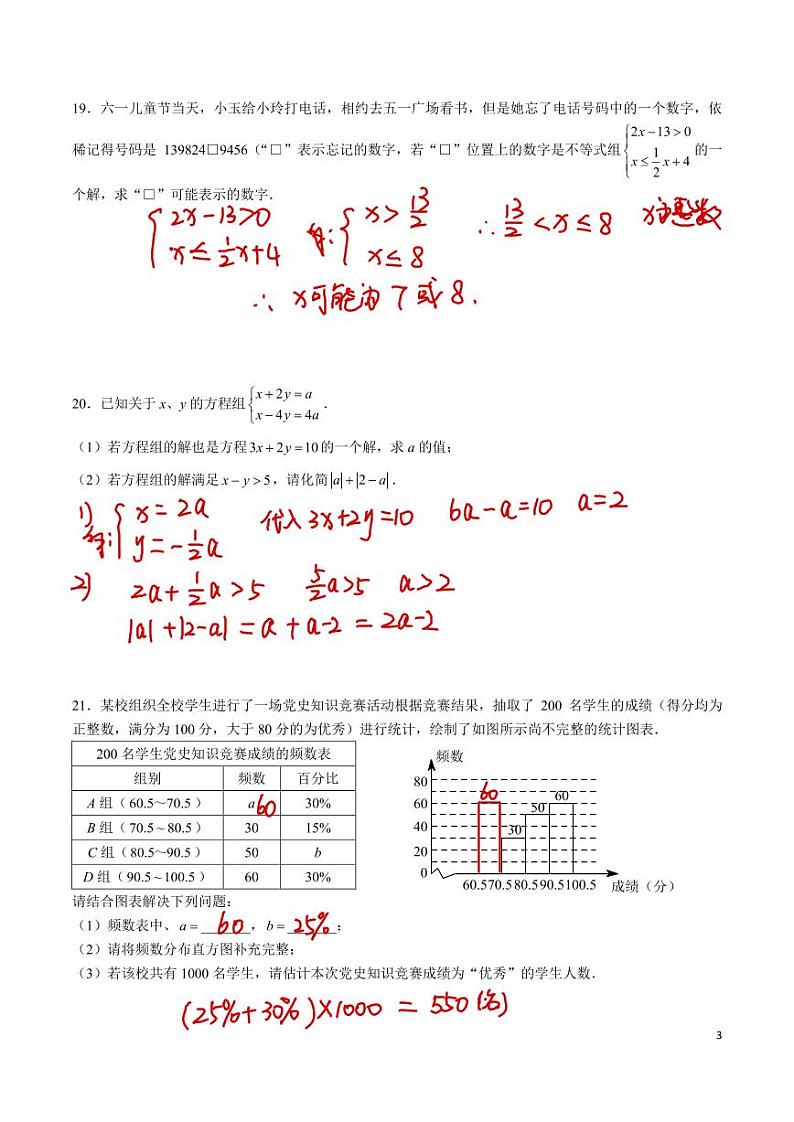 19．六一儿童节当天，小玉给小玲打电话，相约去五一广场看书，但是她忘了电话号码中的一个数字，依
稀记得号码是 139824□9456（“□”表示忘记的数字，若“□”位置上的数字是不等式组{2x－13＞0 x≤1/2x＋4 的一
个解，求“□”可能表示的数字．
{2x－13＞0 x≤1/2x＋4 解：{x＞13/2 x≤8 ∴13/2＜x≤8
∴ x可能为7或8．
20．已知关于 x、y 的方程组{x＋2y＝a x－4y＝4a．
（1）若方程组的解也是方程3x＋2y＝10的一个解，求 a 的值；
（2）若方程组的解满足 x－y＞5，请化简|a|＋|2－a|．
1) 解：{x＝2a y＝－1/2a 代入 3x＋2y＝10 6a－a＝10 a＝2
2) 2a＋1/2a＞5 5/2a＞5 a＞2
|a|＋|2－a|＝a＋a－2＝2a－2
21．某校组织全校学生进行了一场党史知识竞赛活动根据竞赛结果，抽取了 200 名学生的成绩（得分均为
正整数，满分为 100 分，大于 80 分的为优秀）进行统计，绘制了如图所示尚不完整的统计图表．
200 名学生党史知识竞赛成绩的频数表
组别 频数 百分比
A 组（60.5～70.5） a 60 30%
B 组（70.5～80.5） 30 15%
C 组（80.5～90.5） 50 b
D 组（90.5～100.5） 60 30%
频数
80
60
40
20
0
60
30
50
60
60.570.580.590.5100.5 成绩（分）
请结合图表解决下列问题：
（1）频数表中、a＝ 60 ，b＝ 25% ；
（2）请将频数分布直方图补充完整；
（3）若该校共有 1000 名学生，请估计本次党史知识竞赛成绩为“优秀”的学生人数．
(25%＋30%)×1000 ＝ 550(名)
3